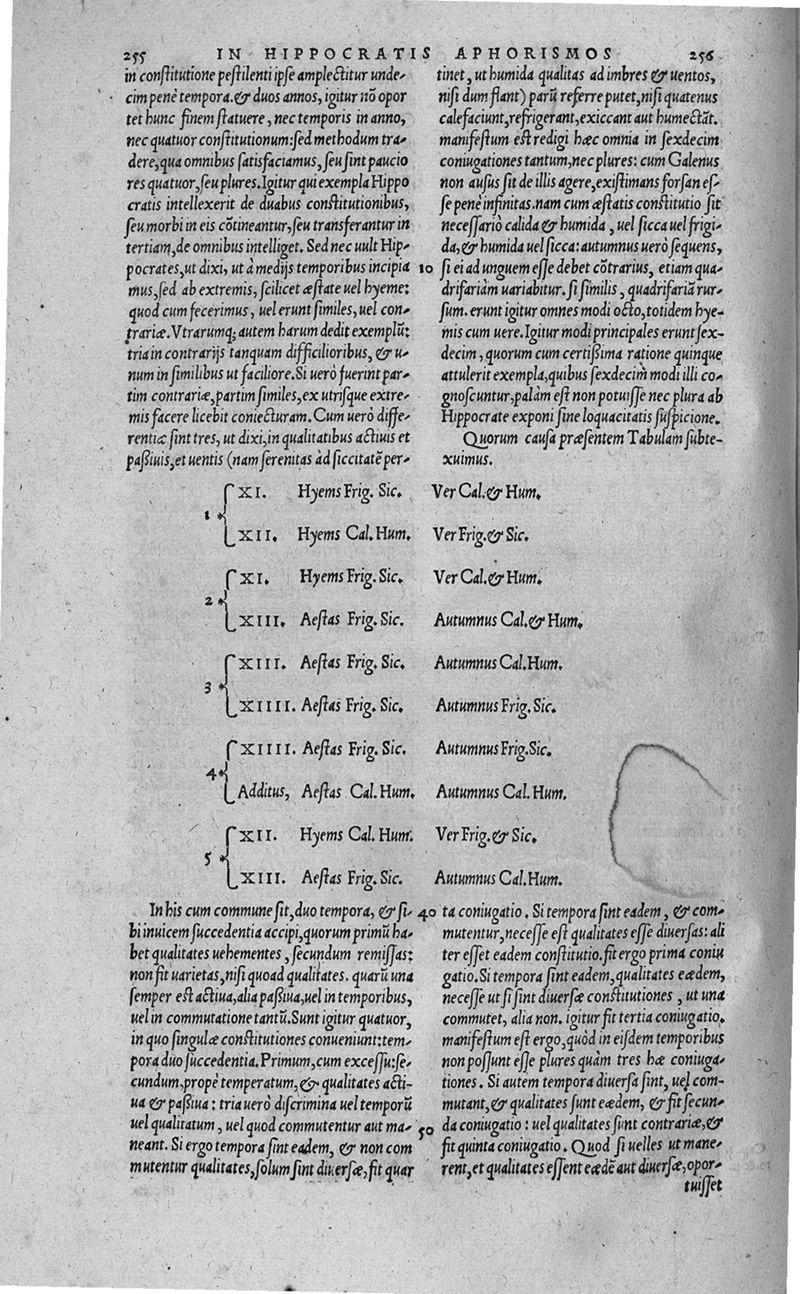 255 IN HIPPOCRATIS APHORISMOS 256
in constitutione pestilenti ipse amplectitur unde-
cim penè tempora. & duos annos, igitur nõ opor
tet hunc finem statuere, nec temporis in anno,
nec quatuor constitutionum: sed methodum tra-
dere, qua omnibus satisfaciamus, seu sint paucio
res quatuor, seu plures. Igitur qui exempla Hippo
cratis intellexerit de duabus constitutionibus,
seu morbi in eis cõtineantur, seu transferantur in
tertiam, de omnibus intelliget. Sed nec uult Hip-
pocrates, ut dixi, ut à medijs temporibus incipia
mus, sed ab extremis, scilicet æstate uel hyeme:
quod cum fecerimus, uel erunt similes, uel con-
trariæ. Vtrarumq; autem harum dedit exemplũ:
tria in contrarijs tanquam difficilioribus, & u-
num in similibus ut faciliore. Si uerò fuerint par-
tim contrariæ, partim similes, ex utrisque extre-
mis facere licebit coniecturam. Cum uerò diffe-
rentiæ sint tres, ut dixi, in qualitatibus actiuis et
paßiuis, et uentis (nam serenitas àd siccitatẽ per-
tinet, ut humida qualitas ad imbres & uentos,
nisi dum flant) parũ referre putet, nisi quatenus
calefaciunt, refrigerant, exiccant aut humectãt.
manifestum est redigi hæc omnia in sexdecim
coniugationes tantum, nec plures: cum Galenus
non ausus sit de illis agere, existimans forsan es-
se penè infinitas. nam cum æstatis constitutio sit
necessariò calida & humida, uel sicca uel frigi-
da, & humida uel sicca: autumnus uerò sequens,
10 si ei ad unguem esse debet cõtrarius, etiam qua-
drifariàm uariabitur. si similis, quadrifariã rur-
sum. erunt igitur omnes modi octo, totidem hye-
mis cum uere. Igitur modi principales erunt sex-
decim, quorum cum certißima ratione quinque
attulerit exempla, quibus sexdecim modi illi co-
gnoscuntur, palàm est non potuisse nec plura ab
Hippocrate exponi sine loquacitatis suspicione.
Quorum causa præsentem Tabulam subte-
xuimus.
XI. Hyems Frig. Sic. Ver Cal. & Hum.
1
XII. Hyems Cal. Hum. Ver Frig. & Sic.
XI. Hyems Frig. Sic. Ver Cal. & Hum.
2
XIII. Aestas Frig. Sic. Autumnus Cal. & Hum.
XIII. Aestas Frig. Sic. Autumnus Cal. Hum.
3
XIIII. Aestas Frig. Sic. Autumnus Frig. Sic.
XIIII. Aestas Frig. Sic. Autumnus Frig. Sic.
4
Additus, Aestas Cal. Hum. Autumnus Cal. Hum.
XII. Hyems Cal. Hum. Ver Frig. & Sic.
5
XIII. Aestas Frig. Sic. Autumnus Cal. Hum.
In his cum commune sit, duo tempora, & si-
bi inuicem succedentia accipi, quorum primũ ha-
bet qualitates uehementes, secundum remissas:
non fit uarietas, nisi quoad qualitates. quarũ una
semper est actiua, alia paßiua, uel in temporibus,
uel in commutatione tantũ. Sunt igitur quatuor,
in quo singulæ constitutiones conueniunt: tem-
pora duo succedentia. Primum, cum excessu: se-
cundum, propè temperatum, & qualitates acti-
ua & paßiua: tria uerò discrimina uel temporũ
uel qualitatum, uel quod commutentur aut ma-
neant. Si ergo tempora sint eadem, & non com
mutentur qualitates, solum sint diuersæ, fit quar
40 ta coniugatio. Si tempora sint eadem, & com-
mutentur, necesse est qualitates esse diuersas: ali
ter esset eadem constitutio. fit ergo prima coniu
gatio. Si tempora sint eadem, qualitates eædem,
necesse ut si sint diuersæ constitutiones, ut una
commutet, alia non. igitur fit tertia coniugatio.
manifestum est ergo, quòd in eisdem temporibus
non possunt esse plures quàm tres hæ coniuga-
tiones. Si autem tempora diuersa sint, uel com-
mutant, & qualitates sunt eædem, & fit secun-
50 da coniugatio: uel qualitates sunt contrariæ, &
fit quinta coniugatio. Quod si uelles ut mane-
rent, et qualitates essent eædẽ aut diuersæ, opor-
tuisset